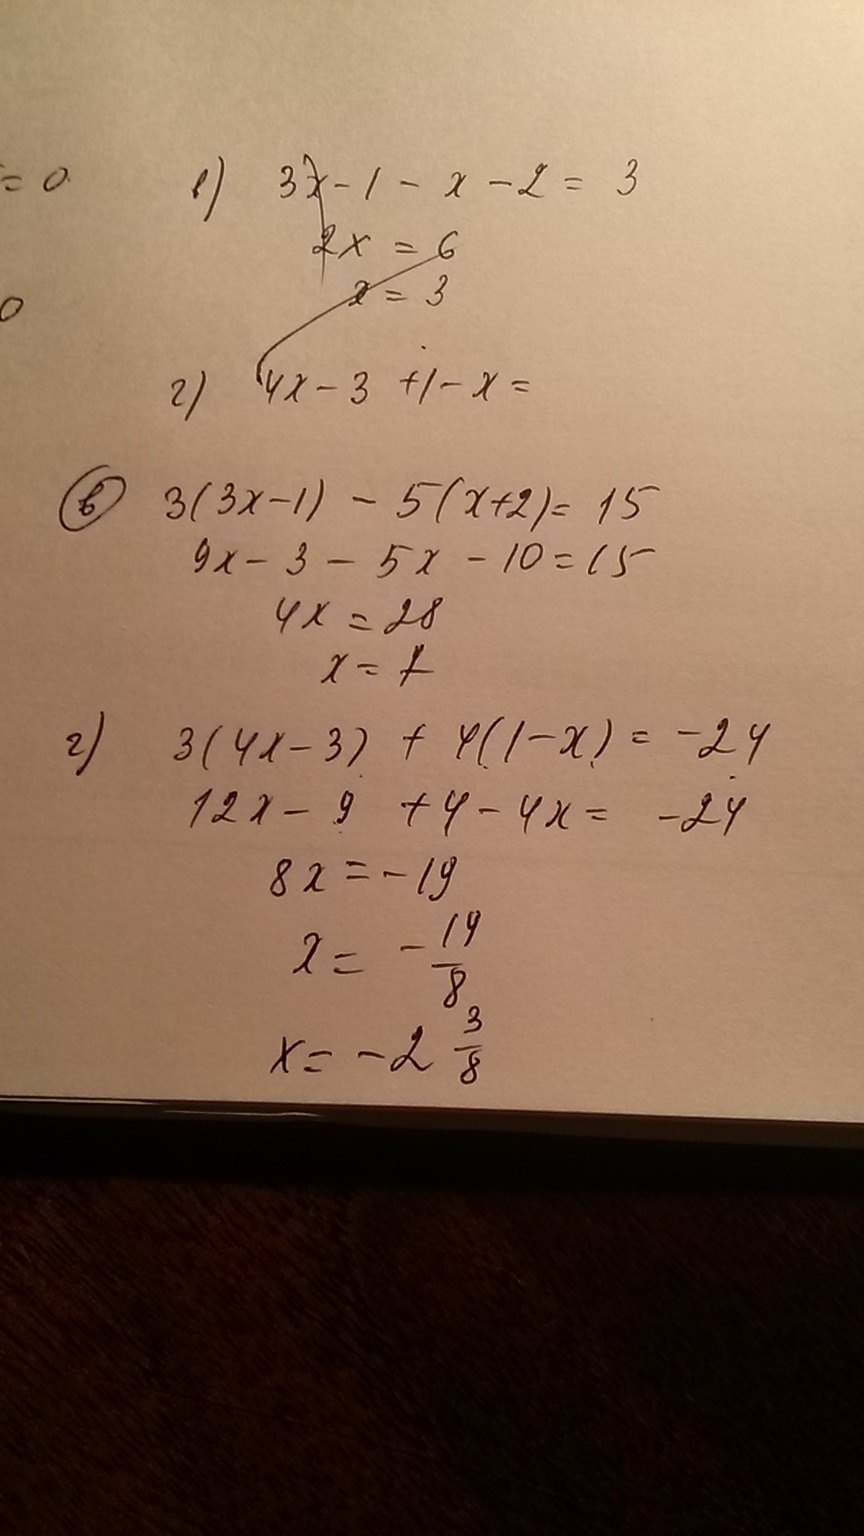 = 0
в) 3x - 1 - x - 2 = 3
2x = 6
x = 3
0
г) 4x - 3 + 1 - x =
в 3(3x-1) - 5(x+2) = 15
9x - 3 - 5x - 10 = 15
4x = 28
x = 7
г) 3(4x-3) + 4(1-x) = -24
12x - 9 + 4 - 4x = -24
8x = -19
x = - 19/8
x = -2 3/8